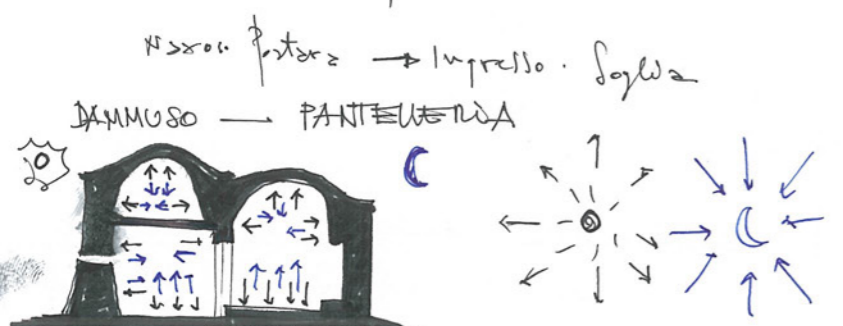 Naxos. Portara → Ingresso. Soglia
DAMMUSO — PANTELLERIA